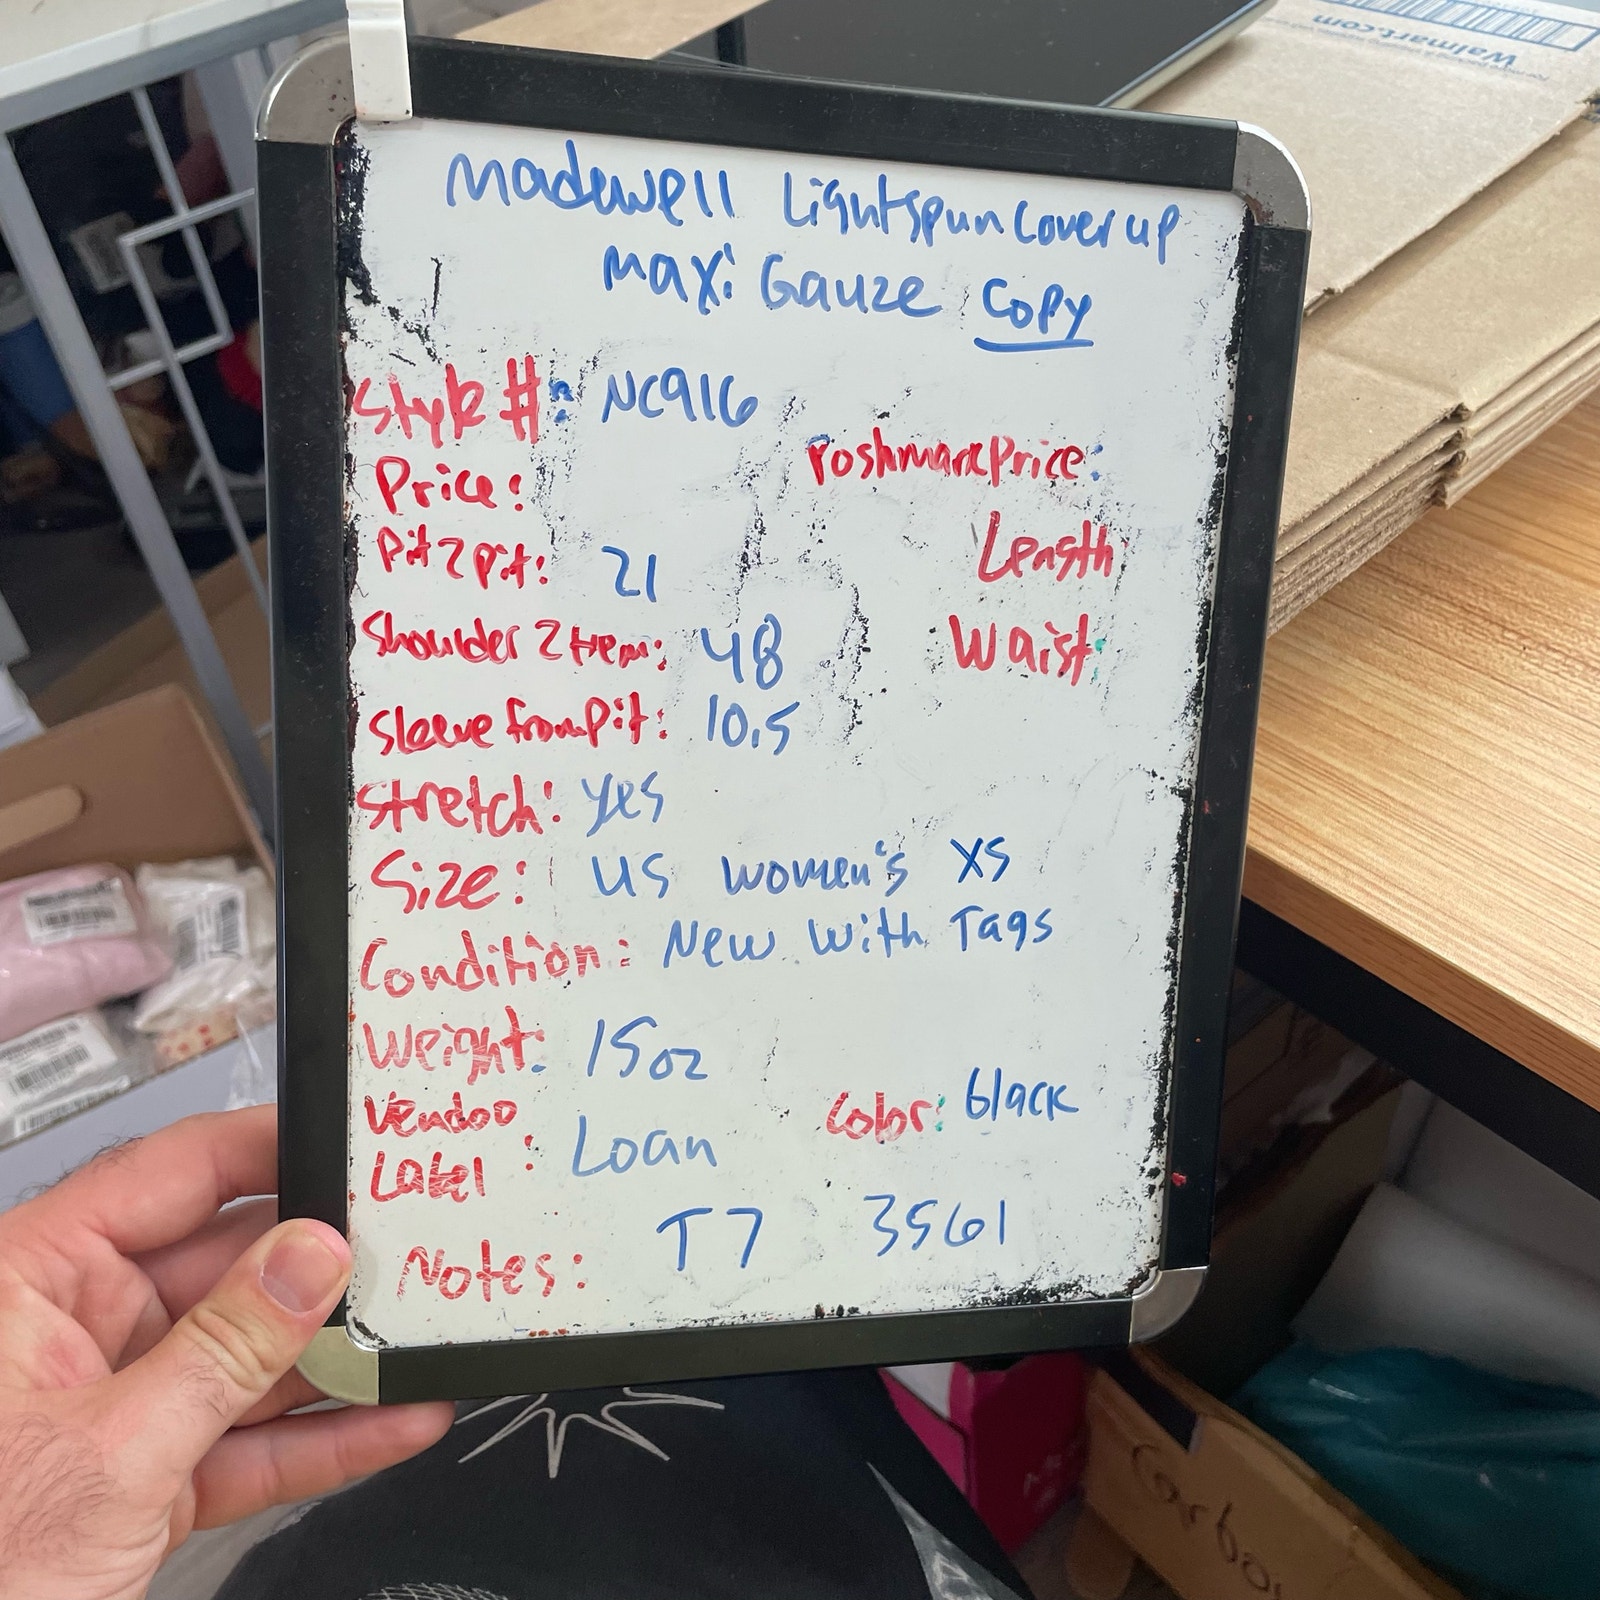 Madewell Lightspun Coverup
Maxi Gauze Copy
Style #: NC916
Price:
Poshmark Price:
Pit 2 Pit: 21
Length
Shoulder 2 Hem: 48
Waist:
Sleeve from Pit: 10.5
Stretch: yes
Size: US Women's XS
Condition: New With Tags
Weight: 15oz
Vendoo
Label: Loan
Color: black
Notes: T7 3561
Walmart.com
Carbon